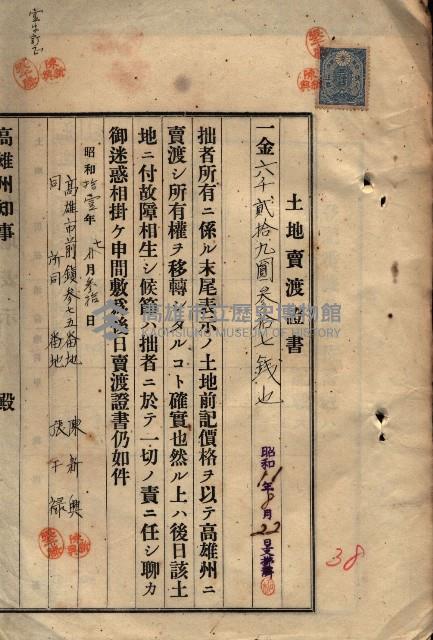 土地賣渡證書
一金六千貳拾九圓叁拾七錢也
昭和11年 月22日支拂濟
拙者所有ニ係ル末尾表示ノ土地前記價格ヲ以テ高雄州ニ
賣渡シ所有權ヲ移轉シタルコト確實也然ル上ハ後日該土
地ニ付故障相生シ候節ハ拙者ニ於テ一切ノ責ニ任シ聊カ
御迷惑相掛ケ申間敷爲後日賣渡證書仍如件
昭和拾壹年七月叁拾日
高雄市前鎮叁七五番地 陳新興
同所同番地 張干祿
高雄州知事 殿
38
高雄市立歷史博物館
KAOHSIUNG MUSEUM OF HISTORY